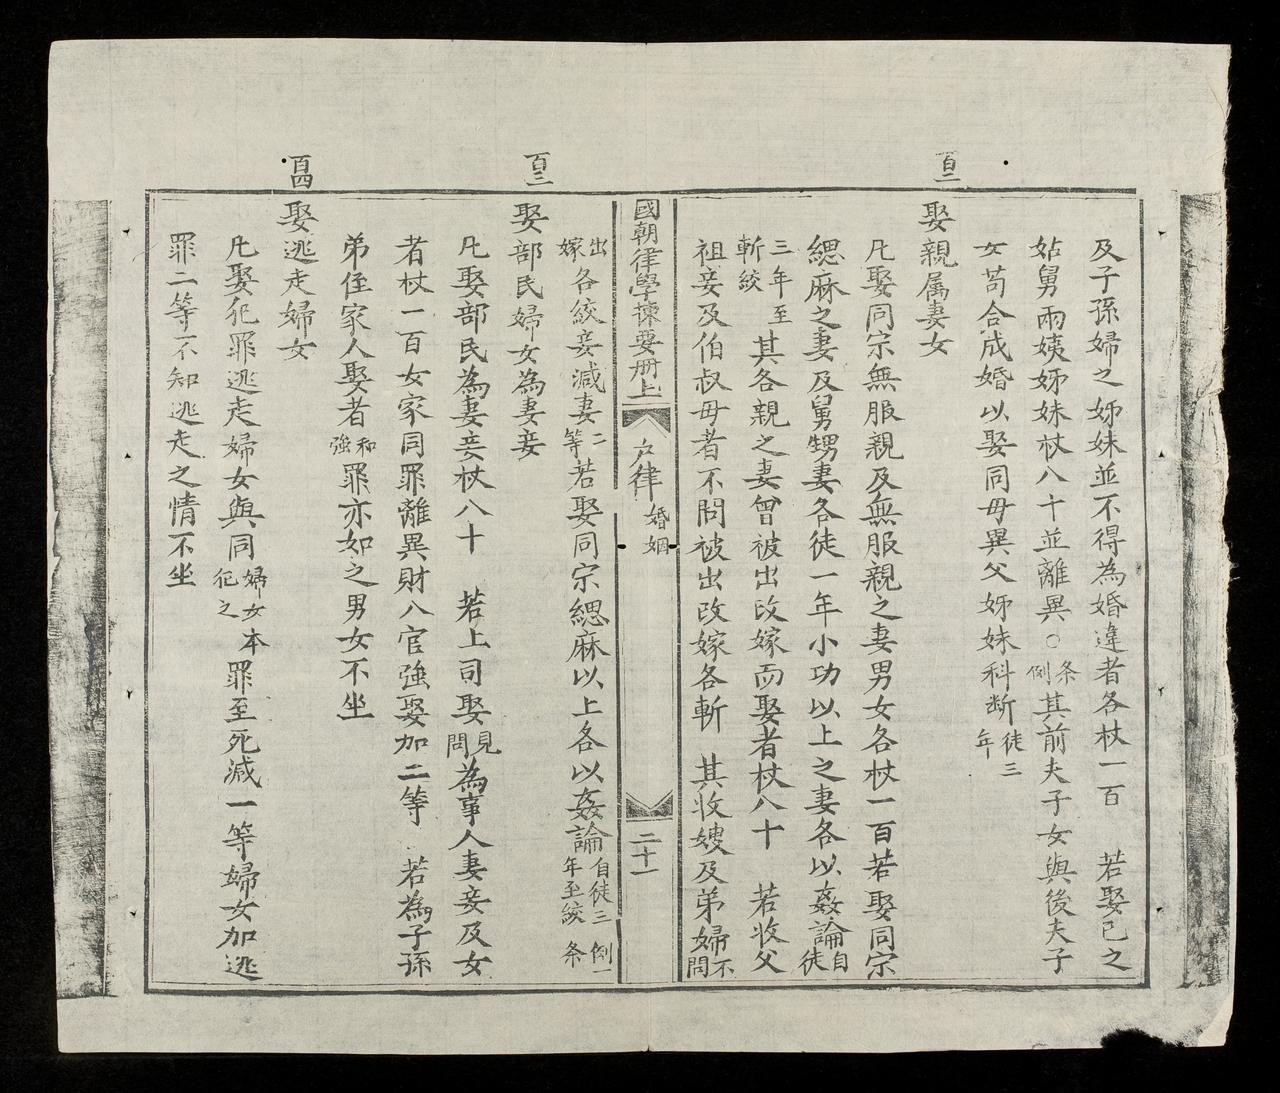 及子孫婦之姊妹並不得為婚違者各杖一百 若娶己之
姑舅兩姨姊妹杖八十並離異○条例其前夫子女與後夫子
女苟合成婚以娶同母異父姊妹科断徒三年
百二
娶親属妻女
凡娶同宗無服親及無服親之妻男女各杖一百若娶同宗
緦麻之妻及舅甥妻各徒一年小功以上之妻各以姦論自徒
三年至斬絞其各親之妻曾被出改嫁而娶者杖八十 若收父
祖妾及伯叔母者不問被出改嫁各斬 其收嫂及弟婦不問
國朝律學揀要册上 户律 婚姻 二十一
出嫁各絞妾減妻二等若娶同宗緦麻以上各以姦論自徒三年至絞 例一条
百三
娶部民婦女為妻妾
凡娶部民為妻妾杖八十 若上司娶見問為事人妻妾及女
者杖一百女家同罪離異財入官強娶加二等 若為子孫
弟侄家人娶者和強罪亦如之男女不坐
百四
娶逃走婦女
凡娶犯罪逃走婦女與同婦女犯之本罪至死減一等婦女加逃
罪二等不知逃走之情不坐